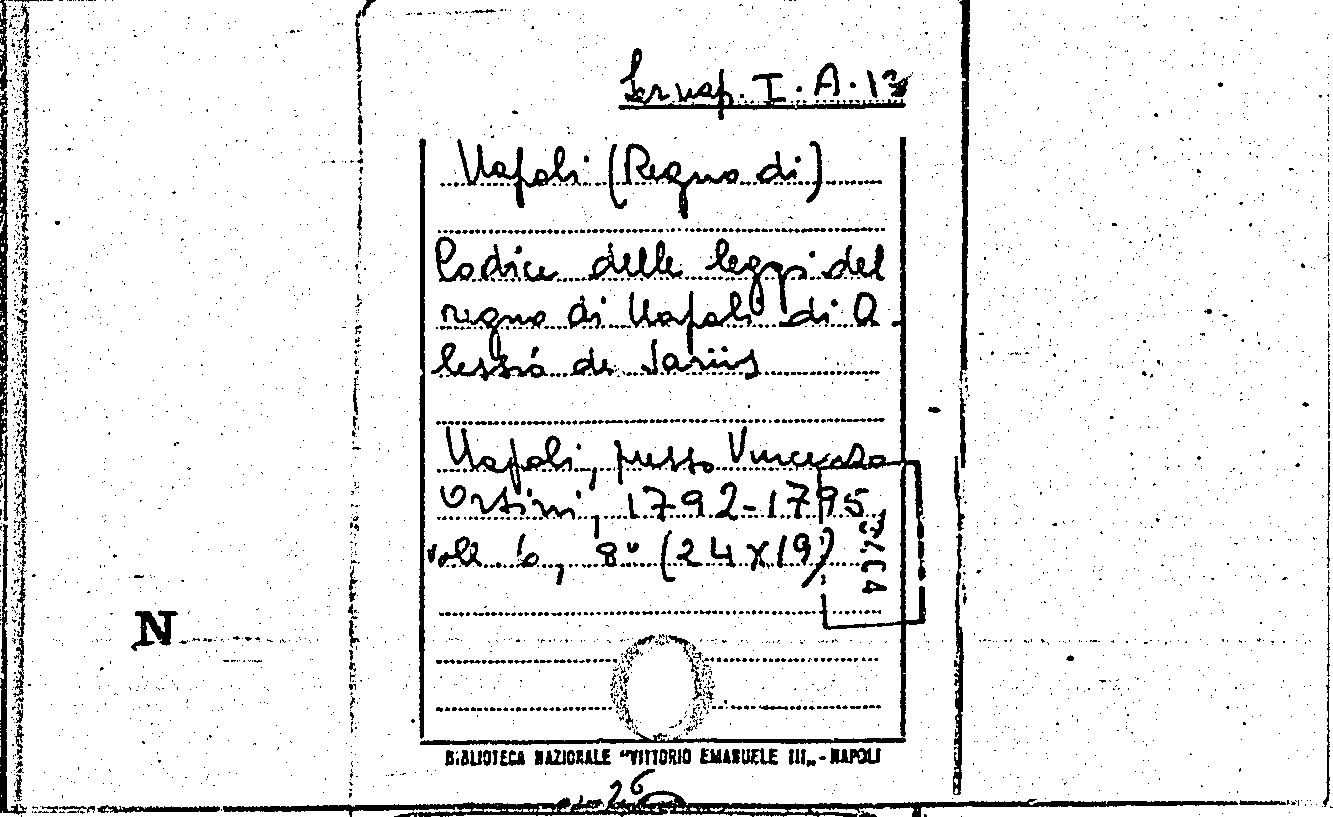 Napoli (Regno di)
Codice delle leggi del
regno di Napoli di A
lessio de Sariis
Napoli, presso Vincenzo
Orsini, 1792-1795,
voll. 6, 8° (24 x 19)
N
BIBLIOTECA NAZIONALE "VITTORIO EMANUELE III„ - NAPOLI
26